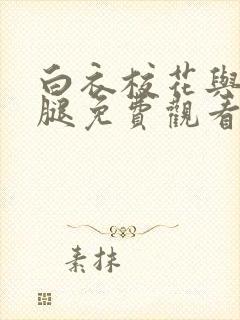 白衣校花與
腿免費觀看
素抹